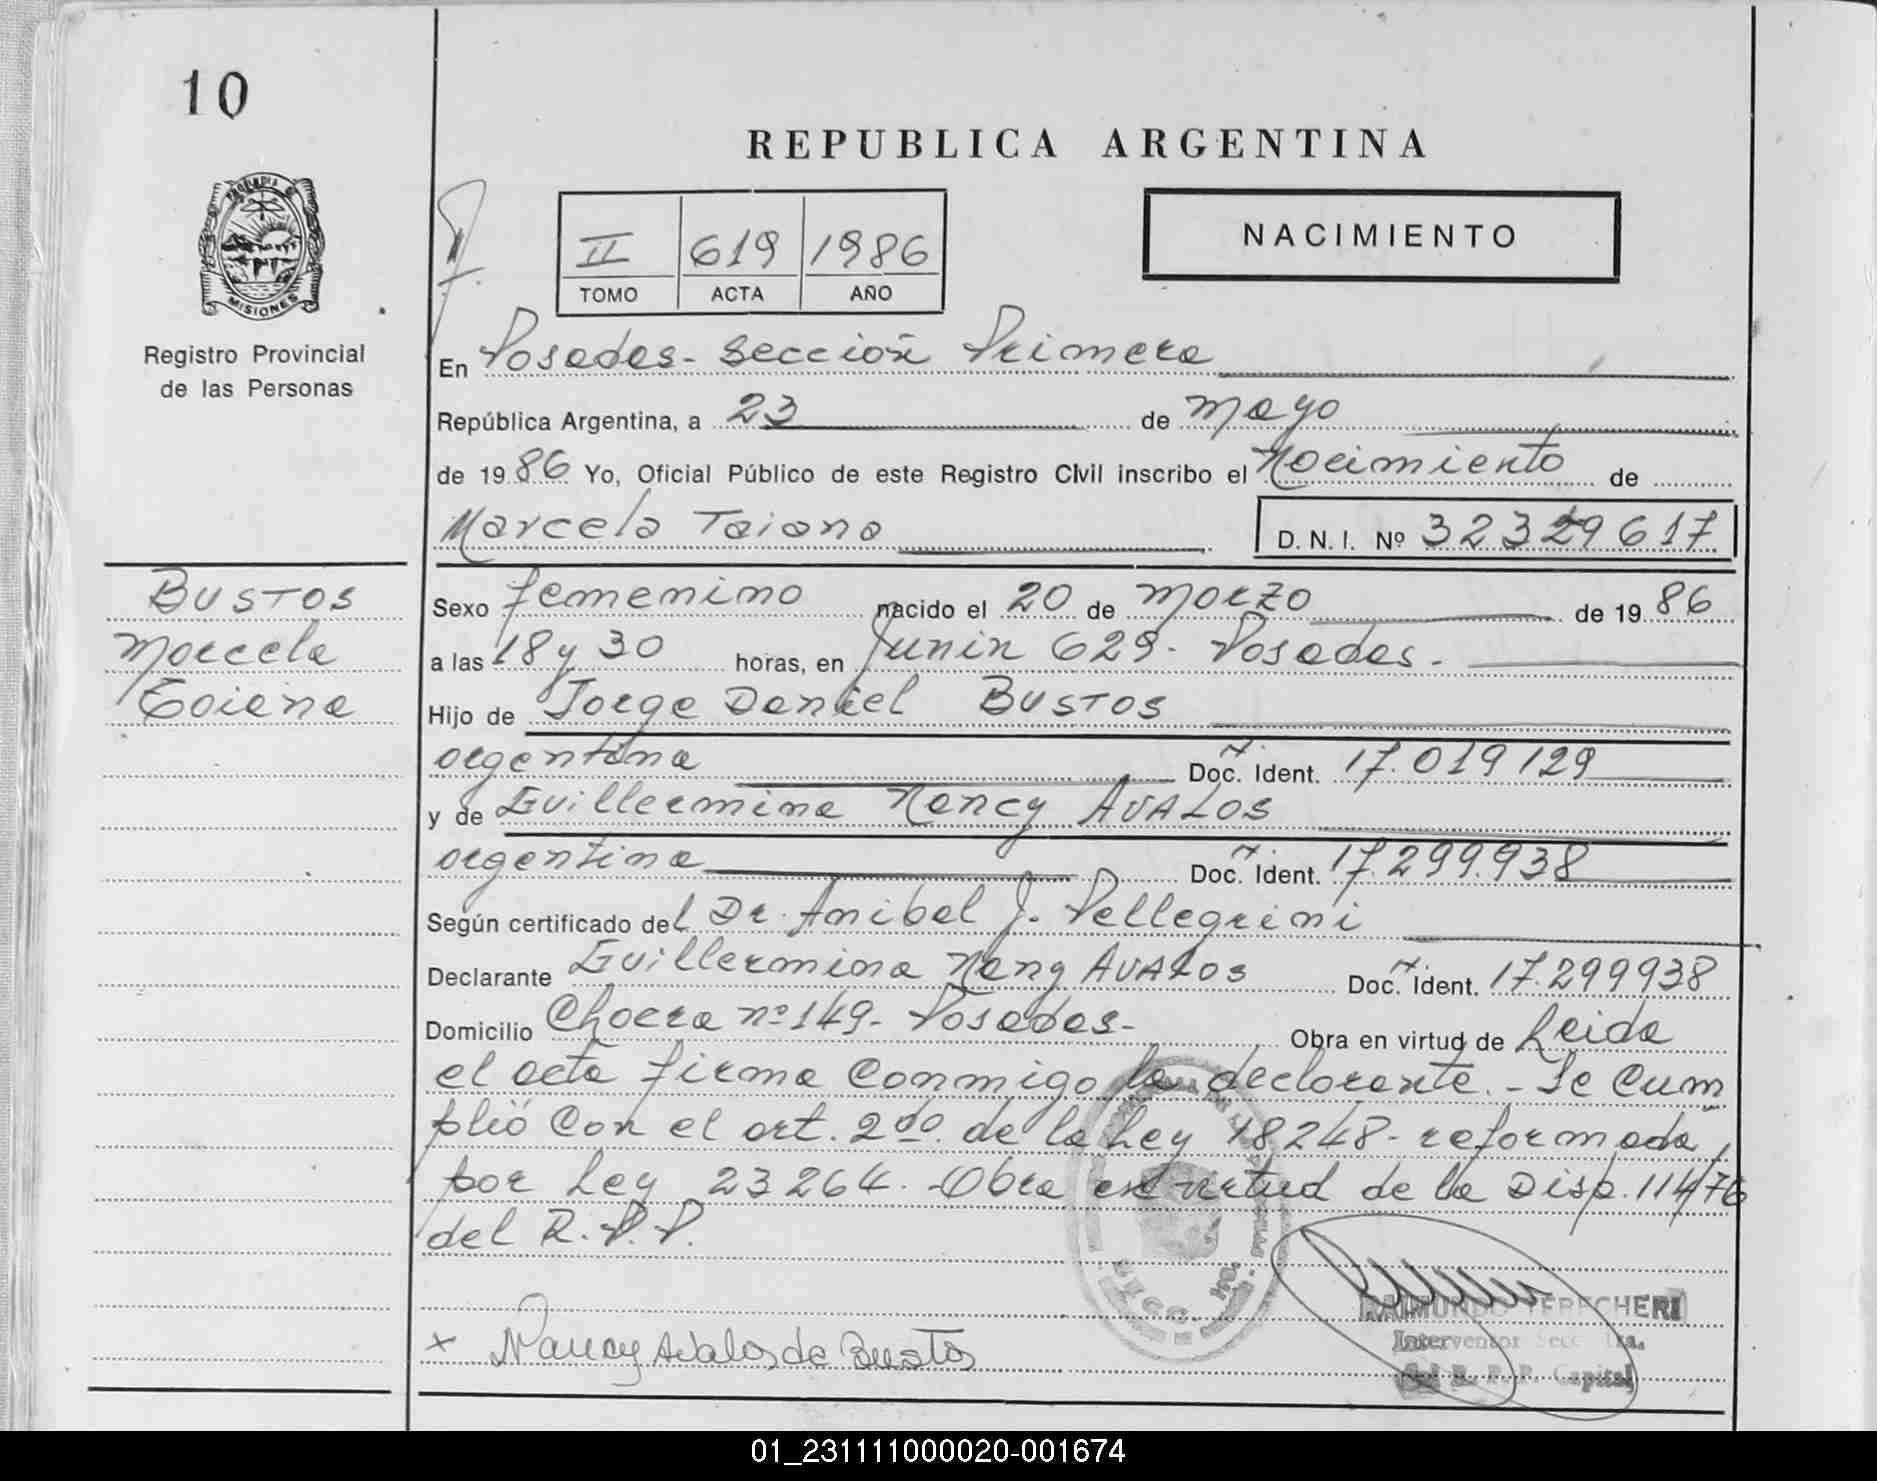 10
REPUBLICA ARGENTINA
PROVINCIA DE
MISIONES
Registro Provincial
de las Personas
II 619 1986
TOMO ACTA AÑO
NACIMIENTO
En Posadas - Sección Primera
República Argentina, a 23 de mayo
de 1986 Yo, Oficial Público de este Registro Civil inscribo el Nacimiento de
Marcela Taiana
D. N. I. Nº 32329617
BUSTOS
Marcela
Taiana
Sexo femenino nacido el 20 de marzo de 1986
a las 18 y 30 horas, en Junin 629 - Posadas.
Hijo de Jorge Daniel BUSTOS
argentina Doc. Ident. 17.019129
y de Guillermina Nancy AVALOS
argentina Doc. Ident. 17.299.938
Según certificado del Dr. Anibal J. Pellegrini
Declarante Guillermina Nancy AVALOS Doc. Ident. 17.299938
Domicilio Chacra nº 149 - Posadas - Obra en virtud de Leida
el acta firma conmigo la declarante. - Se cum
plió con el art. 2do. de la Ley 18248 - reformada
por Ley 23264. - Obra en virtud de la Disp. 114/76
del R. P. P.
x Nancy Avalos de Bustos
Interventor Secc. 1ra.
R. P. P. Capital
01_231111000020-001674